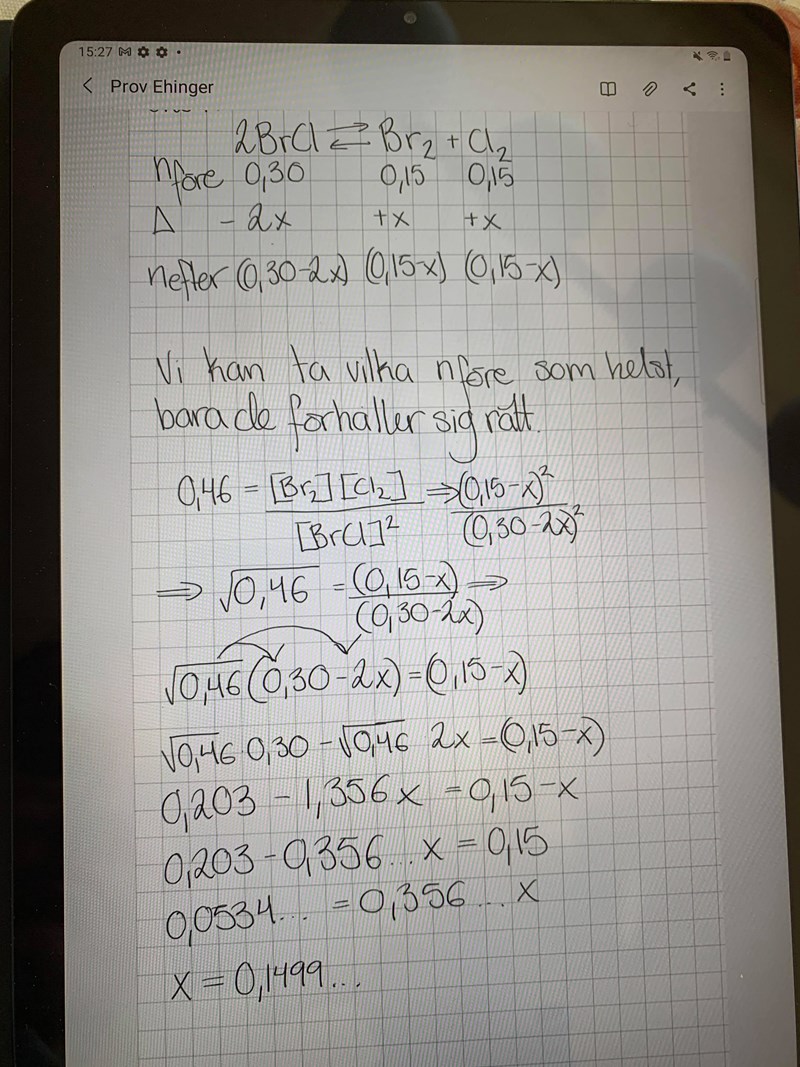 15:27
Prov Ehinger
2BrCl ⇌ Br₂ + Cl₂
nföre 0,30 0,15 0,15
Δ -2x +x +x
nefter (0,30-2x) (0,15-x) (0,15-x)
Vi kan ta vilka nföre som helst,
bara de förhaller sig rätt.
0,46 = [Br₂][Cl₂] / [BrCl]² ⇒ (0,15-x)² / (0,30-2x)²
⇒ √0,46 = (0,15-x) / (0,30-2x) ⇒
√0,46(0,30-2x)=(0,15-x)
√0,46 0,30 - √0,46 2x = (0,15-x)
0,203 - 1,356x = 0,15-x
0,203 - 0,356... x = 0,15
0,0534... = 0,356... x
x = 0,1499...